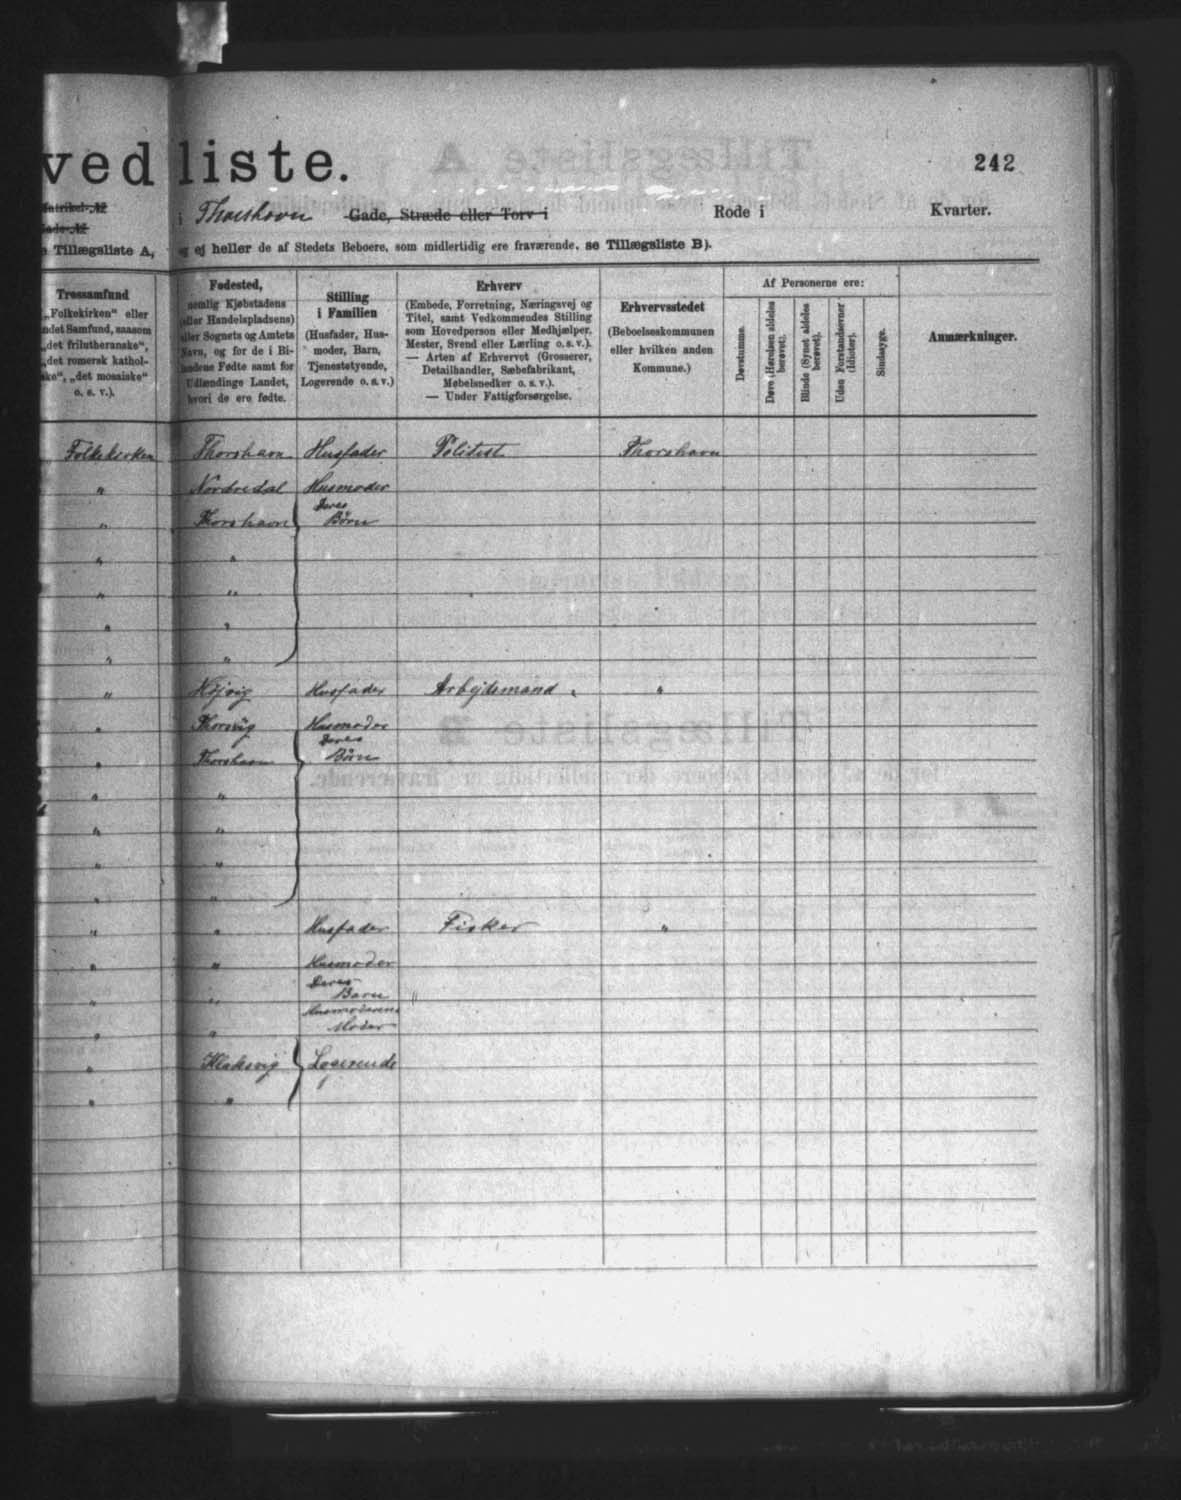 vedliste.
242
Matrikel-№
i Thorshavn Gade, Stræde eller Torv i Rode i Kvarter.
Gade-№
Tillægsliste A, og ej heller de af Stedets Beboere, som midlertidig ere fraværende, se Tillægsliste B).
Trossamfund
„Folkekirken“ eller
andet Samfund, saasom
„det frilutheranske“,
„det romersk kathol-
ske“, „det mosaiske“
o. s. v.).
Fødested,
nemlig Kjøbstadens
(eller Handelspladsens)
eller Sognets og Amtets
Navn, og for de i Bi-
landene Fødte samt for
Udlændinge Landet,
hvori de ere fødte.
Stilling
i Familien
(Husfader, Hus-
moder, Barn,
Tjenestetyende,
Logerende o. s. v.)
Erhverv
(Embede, Forretning, Næringsvej og
Titel, samt Vedkommendes Stilling
som Hovedperson eller Medhjælper,
Mester, Svend eller Lærling o. s. v.).
— Arten af Erhvervet (Grosserer,
Detailhandler, Sæbefabrikant,
Møbelsnedker o. s. v.).
— Under Fattigforsørgelse.
Erhvervsstedet
(Beboelseskommunen
eller hvilken anden
Kommune.)
Af Personerne ere:
Døvstumme.
Døve (Hørelsen aldeles
berøvet).
Blinde (Synet aldeles
berøvet).
Uden Forstandsevner
(Idioter).
Sindssyge.
Anmærkninger.
Folkekirken Thorshavn Husfader Politist Thorshavn
" Nordredal Husmoder
" Thorshavn Deres Børn
" "
" "
" "
" "
" Højvig Husfader Arbejdsmand "
" Husmoder
" Thorshavn Deres Børn
" "
" "
" "
" "
" " Husfader Fisker "
" " Husmoder
" " Deres Barn "
" " Husmoderens Moder
" Klaksvig Logerende
" "